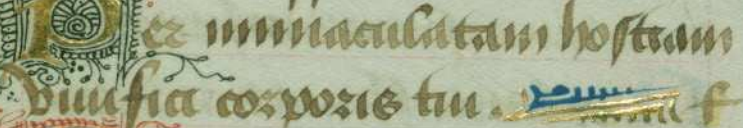 Per immaculatam hostiam
viuifici corporis tui .